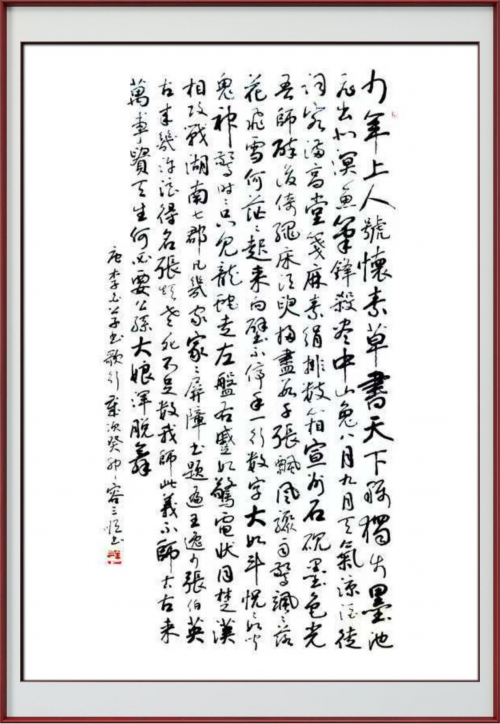 少年上人號懷素草書天下稱獨步墨池
飛出北溟魚筆鋒殺盡中山兔八月九月天氣涼酒徒
詞客滿高堂箋麻素絹排數箱宣州石硯墨色光
吾師醉後倚繩床須臾掃盡數千張飄風驟雨驚颯〻落
花飛雪何茫〻起來向壁不停手一行數字大如斗怳〻如聞
鬼神驚時〻只見龍蛇走左盤右蹙如驚電狀同楚漢
相攻戰湖南七郡凡幾家家〻屏障書題遍王逸少張伯英
古來幾許浪得名張顛老死不足數我師此義不師古古來
萬事貴天生何必要公孫大娘渾脫舞
唐李白草書歌行 歲次癸卯